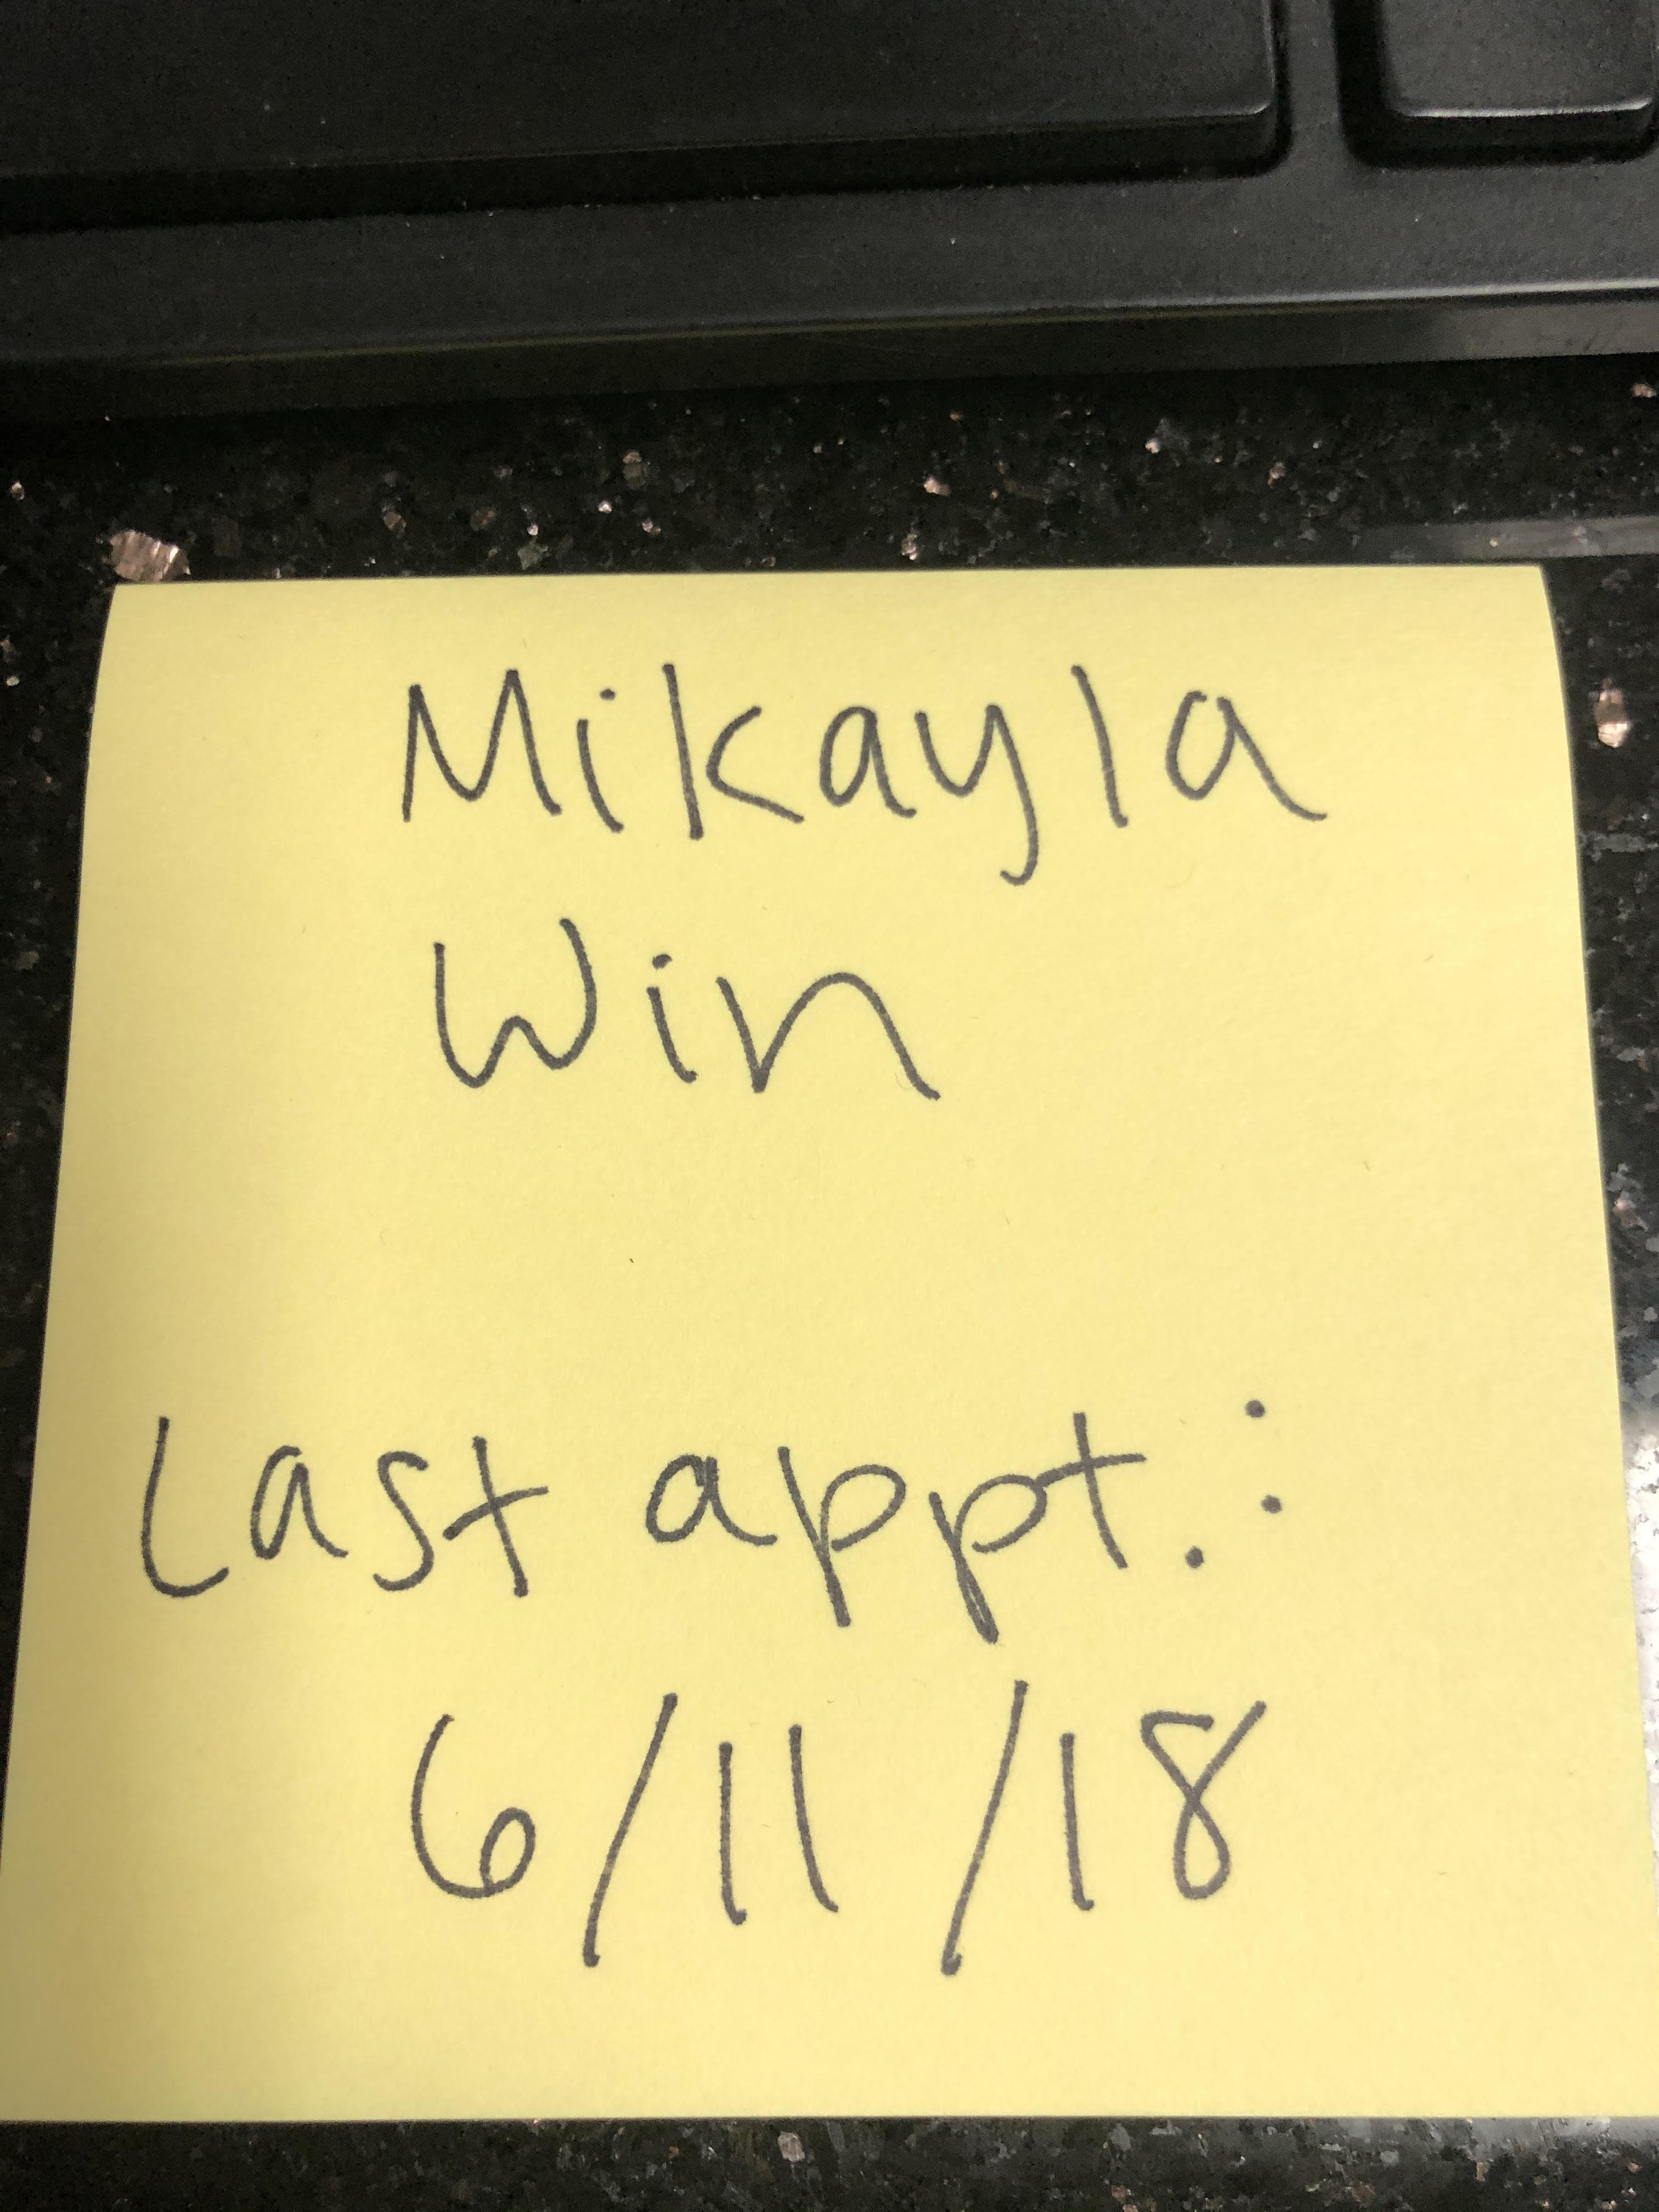 Mikayla
Win
Last appt.:
6/11/18